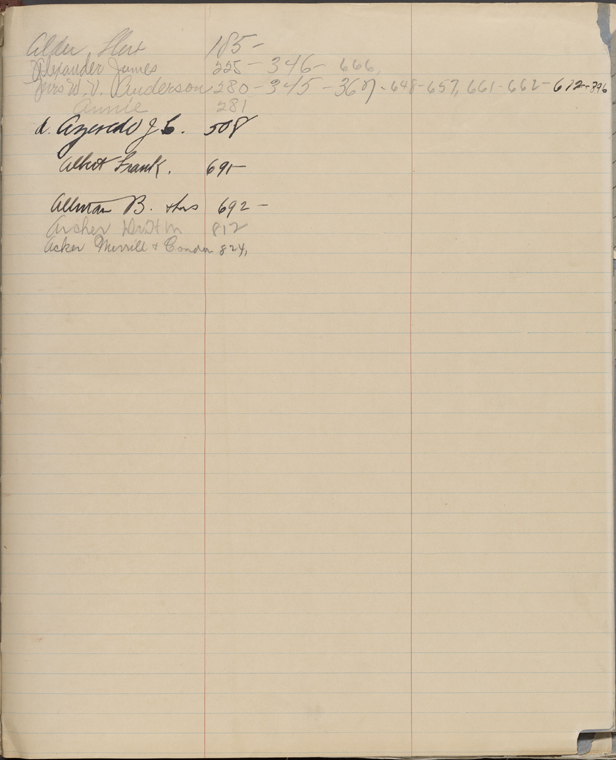 Alder, 185 -
Alexander James 225 - 346 - 666.
Mrs W. V. Anderson 280 - 345 - 367 - 648 - 657, 661 - 662 - 672 - 396
Annie 281
d. Azevedo J E. 508
Albert Frank. 691 -
Allman B. + Mrs 692 -
Archer 812
Asker Merrill + Condon 824,